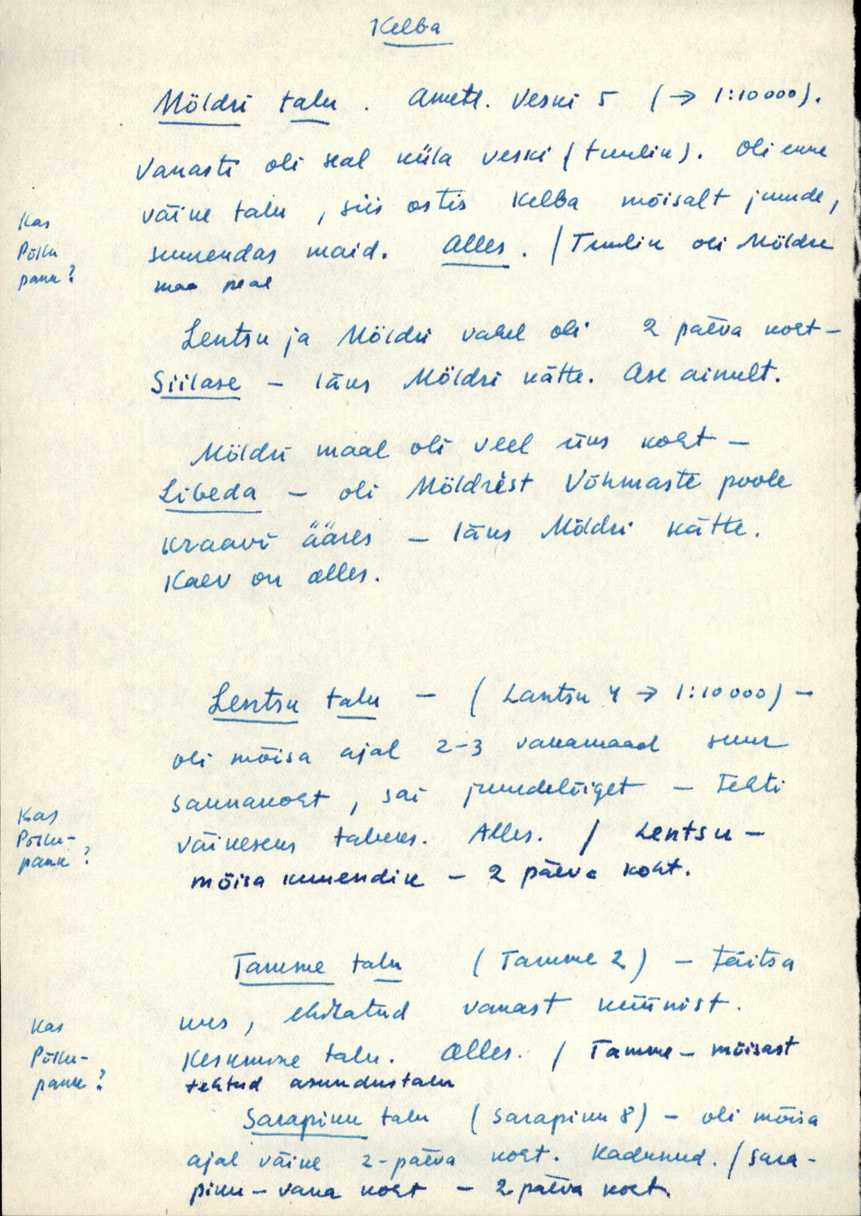 Kelba
Möldri talu. Ametl. Veski 5 (→ 1:10 000).
Vanasti oli seal küla veski (tuulik). Oli enne
väike talu, siis ostis Kelba mõisalt juurde,
suurendas maid. Alles. / Tuulik oli Möldre
maa peal
Kas
Põllu
pank?
Lentsu ja Möldri vahel oli 2 päeva koht –
Siilase – läks Möldri kätte. Ase ainult.
Möldri maal oli veel üks koht –
Libeda – oli Möldrist Võhmaste poole
kraavi ääres – läks Möldri kätte.
Kaev on alles.
Lentsu talu – (Lantsu 4 → 1:10 000) –
oli mõisa ajal 2-3 vakamaad suur
saunakoht, sai juurdelõiget – tehti
väikeseks taluks. Alles. / Lentsu –
mõisa kuuendik – 2 päeva koht.
Kas
Põllu-
pank?
Tamme talu (Tamme 2) – täitsa
uus, ehitatud vanast küünist.
Keskmine talu. Alles. / Tamme – mõisast
tehtud asundustalu
Kas
Põllu-
pank?
Sarapiku talu (Sarapiku 8) – oli mõisa
ajal väike 2-päeva koht. Kadunud. / Sara-
piku – vana koht – 2 päeva koht.